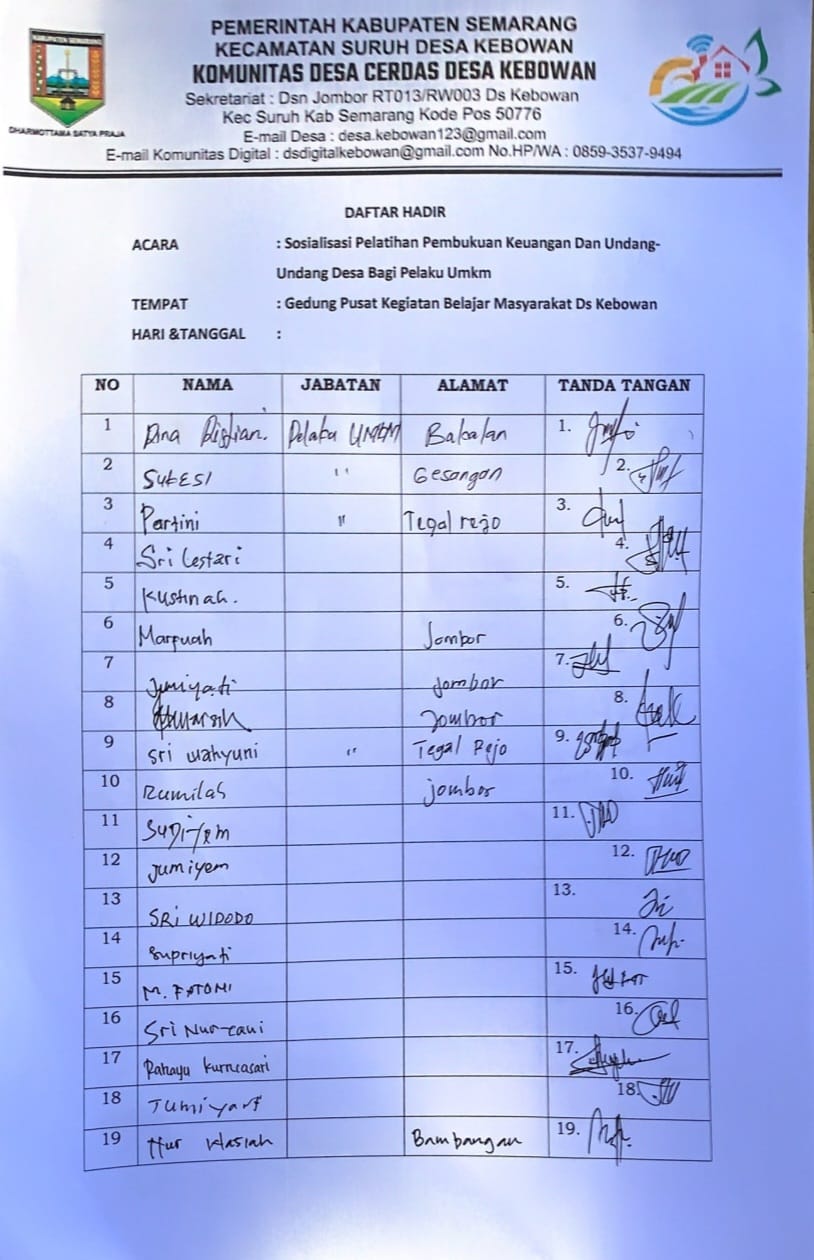 KABUPATEN SEMARANG
DHARMOTTAMA SATYA PRAJA
PEMERINTAH KABUPATEN SEMARANG
KECAMATAN SURUH DESA KEBOWAN
KOMUNITAS DESA CERDAS DESA KEBOWAN
Sekretariat : Dsn Jombor RT013/RW003 Ds Kebowan
Kec Suruh Kab Semarang Kode Pos 50776
E-mail Desa : desa.kebowan123@gmail.com
E-mail Komunitas Digital : dsdigitalkebowan@gmail.com No.HP/WA : 0859-3537-9494
DAFTAR HADIR
ACARA : Sosialisasi Pelatihan Pembukuan Keuangan Dan Undang-
Undang Desa Bagi Pelaku Umkm
TEMPAT : Gedung Pusat Kegiatan Belajar Masyarakat Ds Kebowan
HARI &TANGGAL :
NO NAMA JABATAN ALAMAT TANDA TANGAN
1 Pelaku UMKM Bakalan 1.
2 SukESI " Gesangan 2.
3 Partini " Tegal rejo 3.
4 Sri Lestari 4.
5 Kustinah. 5.
6 Marpuah Jombor 6.
7 Jumiyati Jombor 7.
8 Jombor 8.
9 Sri wahyuni " Tegal Rejo 9.
10 Rumilah jombor 10.
11 11.
12 Jumiyem 12.
13 SRI WIDODO 13.
14 Supriyati 14.
15 M. FATONI 15.
16 Sri Nur-eani 16.
17 Rahayu Kurniasari 17.
18 18.
19 Nur Hasiah Bambangan 19.